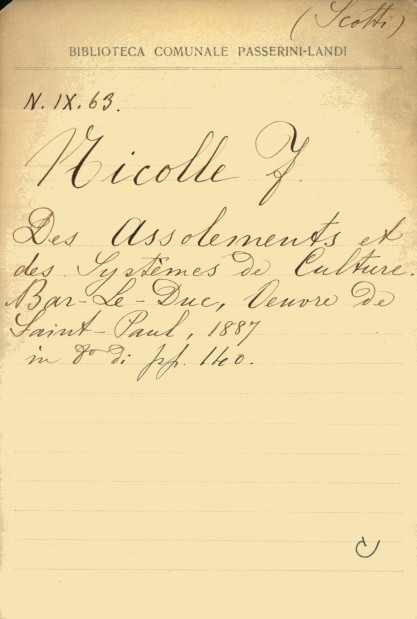 (Scotti)
BIBLIOTECA COMUNALE PASSERINI-LANDI
N. IX. 63.
Nicolle F.
Des Assolements et
des Systèmes de Culture.
Bar-Le-Duc, Oeuvre de
Saint-Paul, 1887
in 8º di pp. 140.